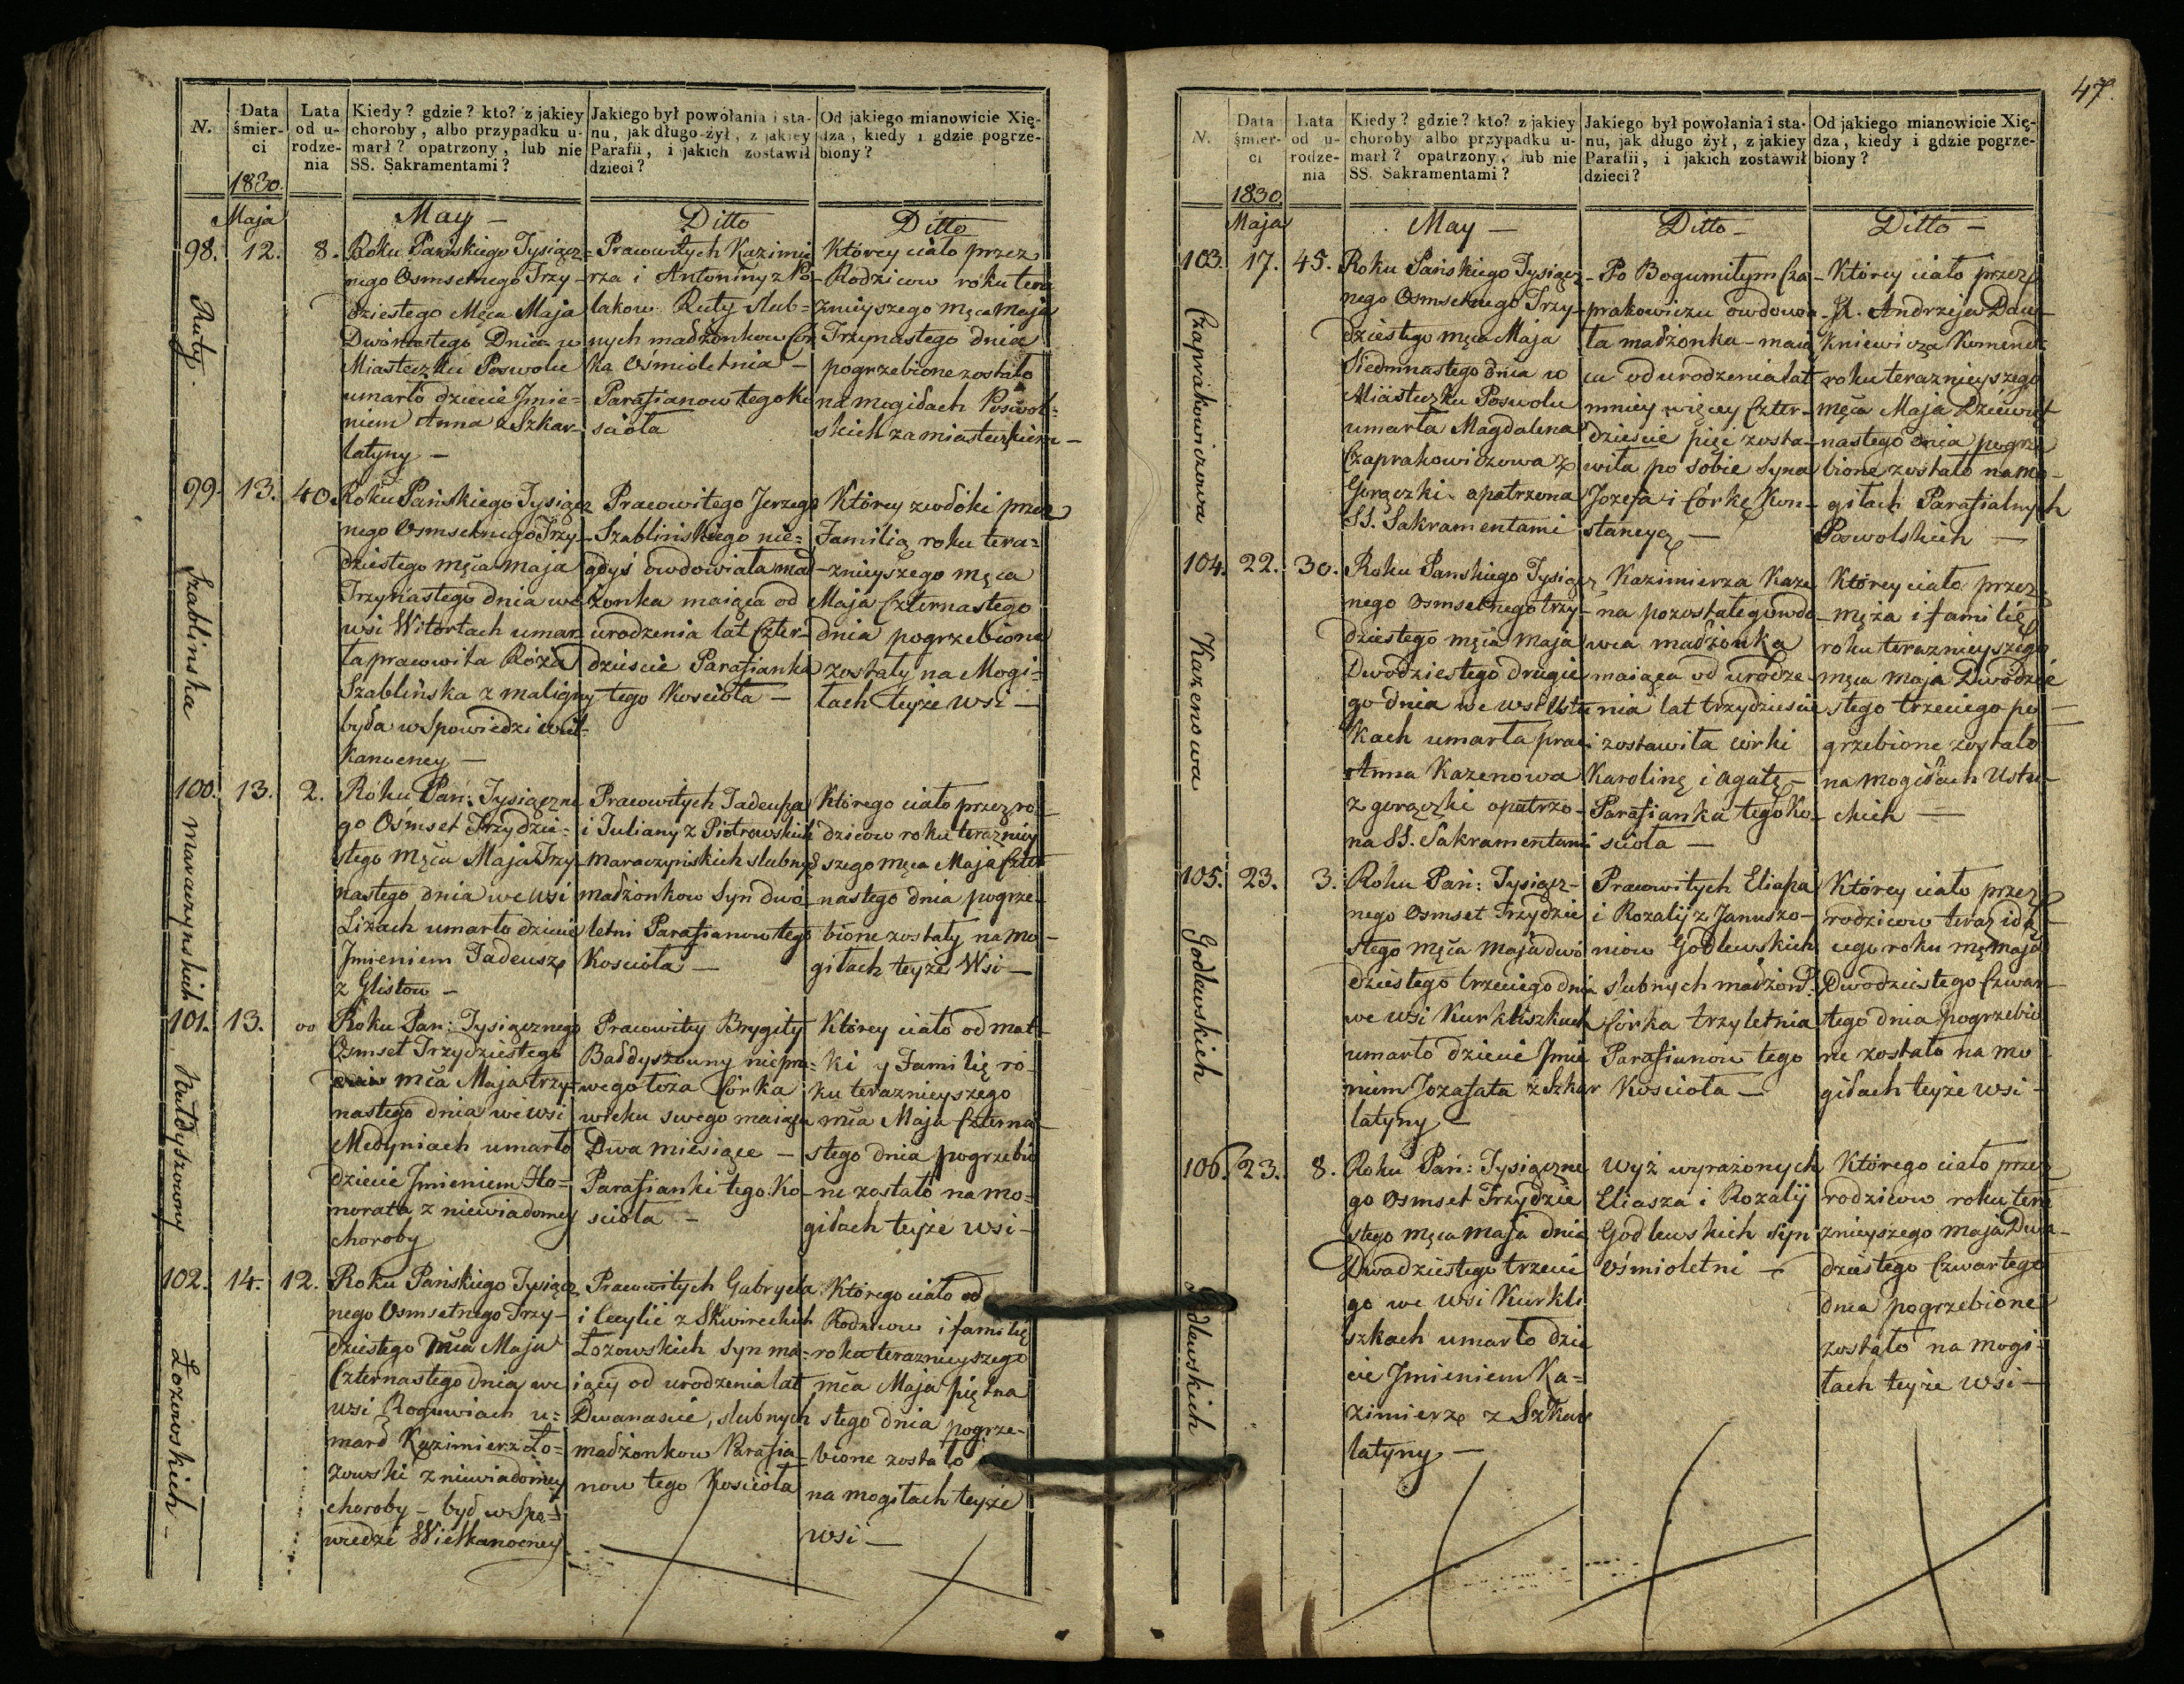 N.
Data śmier-
ci
1830.
Lata
od u-
rodze-
nia
Kiedy? gdzie? kto? z jakiey
choroby, albo przypadku u-
marł? opatrzony, lub nie
SS. Sakramentami?
Jakiego był powołania i sta-
nu, jak długo żył, z jakiey
Parafii, i jakich zostawił
dzieci?
Od jakiego mianowicie Xię-
dza, kiedy i gdzie pogrze-
biony?
Maja
May —
Ditto
Ditto
98.
Ruty.
12.
8.
Roku Pańskiego Tysiącz-
nego Osmsetnego Trzy-
dziestego Męca Maja
Dwónastego Dnia w
Miasteczku Poswolu
umarło dziecie Jmie-
niem Anna z Szkar-
latyny —
Pracowitych Kazimie
rza i Antoniny z Po
lakow Ruty slub-
nych małżonkow Cór
ka Ośmioletnia —
Parafianow tego Ko
scioła
Którey ciało przez
Rodzicow roku tera
znieyszego Męca Maja
Trzynastego dnia
pogrzebione zostało
na mogiłach Poswol-
skich za miasteczkiem —
99.
Szablinska
13.
40.
Roku Pańskiego Tysiącz
nego Osmsetnego Trzy-
dziestego męca maja
Trzynastego dnia we
wsi Witortach umar
ła pracowita Róża
Szablińska z maligny
była w Spowiedzi wiel-
kanocney —
Pracowitego Jerzego
Szablińskiego nie-
gdyś owdowiała mał
żonka maiąca od
urodzenia lat Czter-
dzieście Parafianka
tego Kosciola —
Którey zwłoki przez
Familią roku tera-
znieyszego męca
Maja Czternastego
dnia pogrzebione
zostały na Mogi-
łach teyże wsi —
100.
Maraczynskich
13.
2.
Roku Pań: Tysiączne
go Osmset Trzydzie-
stego Męca Maja Trzy
nastego dnia we wsi
Liżach umarło dziecie
Jmieniem Tadeusz
z Glistow —
Pracowitych Tadeusza
i Juliany z Piotrowskich
Maraczyńskich slubnych
małżonkow Syn dwó-
letni Parafianow tego
Kosciola —
Którego ciało przez ro-
dzicow roku teraźniey
szego męca Maja Czter
nastego dnia pogrze-
bione zostały na mo-
giłach teyże Wsi —
101.
Bałdyszowny
13.
00
Roku Pań: Tysiącznego
Osmset Trzydziestego
mca Maja trzy-
nastego dnia we wsi
Medyniach umarło
dziecie Jmieniem Ho-
norata z niewiadomey
choroby
Pracowitey Brygity
Bałdyszowny niepra-
wego łoża Córka
wieku swego maiąca
Dwa miesiące —
Parafianki tego Ko-
sciola —
Którey ciało od mat-
ki y Familię ro-
ku teraznieyszego
mca Maja Czterna-
stego dnia pogrzebio
ne zostało na mo-
giłach teyże wsi —
102.
Łozowskich —
14.
12.
Roku Pańskiego Tysiącz
nego Osmsetnego Trzy-
dziestego mca Maja
Czternastego dnia we
wsi Roguwiach u-
marł Kazimierz Ło-
zowski z niewiadomey
choroby — był w Spo-
wiedzi Wielkanocney
Pracowitych Gabryela
i Cecylie z Skwireckich
Łozowskich Syn ma-
iący od urodzenia lat
Dwanascie, slubnych
małżonkow Parafia-
now tego Kosciola
Którego ciało od
Rodzicow i familię
roku teraznieyszego
mca Maja piętna
stego dnia pogrze-
bione zostało
na mogiłach teyże
wsi —
47.
N.
Data śmier-
ci
1830
Lata
od u-
rodze-
nia
Kiedy? gdzie? kto? z jakiey
choroby albo przypadku u-
marł? opatrzony, lub nie
SS. Sakramentami?
Jakiego był powołania i sta-
nu, jak długo żył, z jakiey
Parafii, i jakich zostawił
dzieci?
Od jakiego mianowicie Xię-
dza, kiedy i gdzie pogrze-
biony?
Maja
May —
Ditto —
Ditto —
103.
Czaprakowiczowa
17.
45.
Roku Pańskiego Tysiącz-
nego Osmsetnego Trzy-
dziestego męca Maja
Siedmnastego dnia w
Miasteczku Poswolu
umarła Magdalena
Czaprakowiczowa z
Gorączki opatrzona
SS. Sakramentami
Po Bogumiłym Cza
prakowiczu owdowia
ła małżonka — maią
ca od urodzenia lat
mniey więcey Czter-
dzieście pięć zosta-
wiła po sobie Syna
Jozefa i Córkę Kon-
stancyą —
Którey ciało przez
JX. Andrzeja Daw-
kniewicza Komend
roku teraznieyszego
męca Maja Dziewięt
nastego dnia pogrze
bione zostało na mo-
giłach Parafialnych
Poswolskich —
104.
Kazenowa
22.
30.
Roku Panskiego Tysiącz
nego Osmsetnego trzy-
dziestego męca maja
Dwodziestego drugie
go dnia we wsi Ustu
kach umarła prac:
Anna Kazenowa
z gorączki opatrzo-
na SS. Sakramentami
Kazimierza Kaze
na pozostałego wdo-
wca małżonka
maiąca od urodze-
nia lat trzydzieście
i zostawiła córki
Karolinę i Agatę —
Parafianka tego Ko-
sciola —
Którey ciało przez
męża i familię
roku teraznieyszego
męca maja Dwódzie
stego trzeciego po-
grzebione zostało
na mogiłach Ustu-
ckich —
105.
Godlewskich
23.
3.
Roku Pań: Tysiącz-
nego Osmset Trzydzie
stego męca maja dwó
dziestego trzeciego dnia
we wsi Kurkliszkach
umarło dziecie Jmie
niem Jozafata z Szkar
latyny —
Pracowitych Eliasza
i Rozalij z Januszo-
niow Godlewskich
slubnych małżonk:
Córka trzyletnia
Parafianow tego
Kosciola —
Którey ciało przez
rodzicow teraz idą-
cego roku mę maja
Dwodziestego Czwar-
tego dnia pogrzebio
ne zostało na mo
giłach teyże wsi —
106.
Godlewskich
23.
8.
Roku Pań: Tysiączne
go Osmset Trzydzie
stego męca maja dnia
Dwadziestego trzecie
go we wsi Kurkli
szkach umarło dzie
cie Jmieniem Ka-
zimierz z Szkar
latyny —
wyż wyrażonych
Eliasza i Rozalij
Godlewskich syn
Ośmioletni —
Którego ciało przez
rodzicow roku tera
znieyszego maja Dwa-
dziestego Czwartego
dnia pogrzebione
zostało na mogi-
łach teyże wsi —